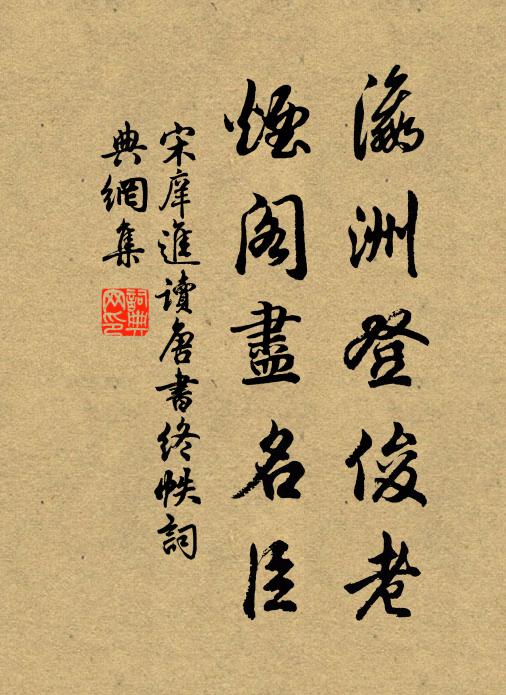 瀛洲登俊老
煙閣盡名臣
宋庠進讀唐書終帙詞
典網集
詞典
网印